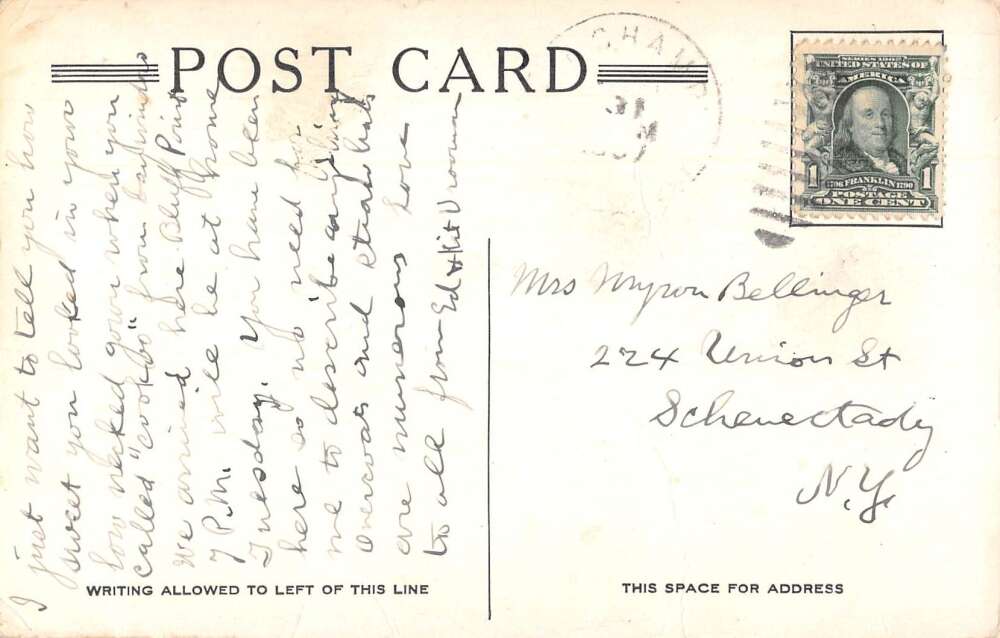 POST CARD
CHAM
31
M
190
SERIES 1902
UNITED STATES OF
AMERICA
1 1
1706 FRANKLIN 1790
POSTAGE
ONE CENT
I just want to tell you how
sweet you looked in your
low necked gown when you
called "cookoo" from
We arrived here
7 P.M. will be at home
Tuesday. You have been
here so no need for
me to describe anything
Overcoats and straw hats
are numerous Love
to all from Ed & Kit Vrooman
Mrs Myron Bellinger
224 Union St
Schenectady
N.Y.
WRITING ALLOWED TO LEFT OF THIS LINE
THIS SPACE FOR ADDRESS